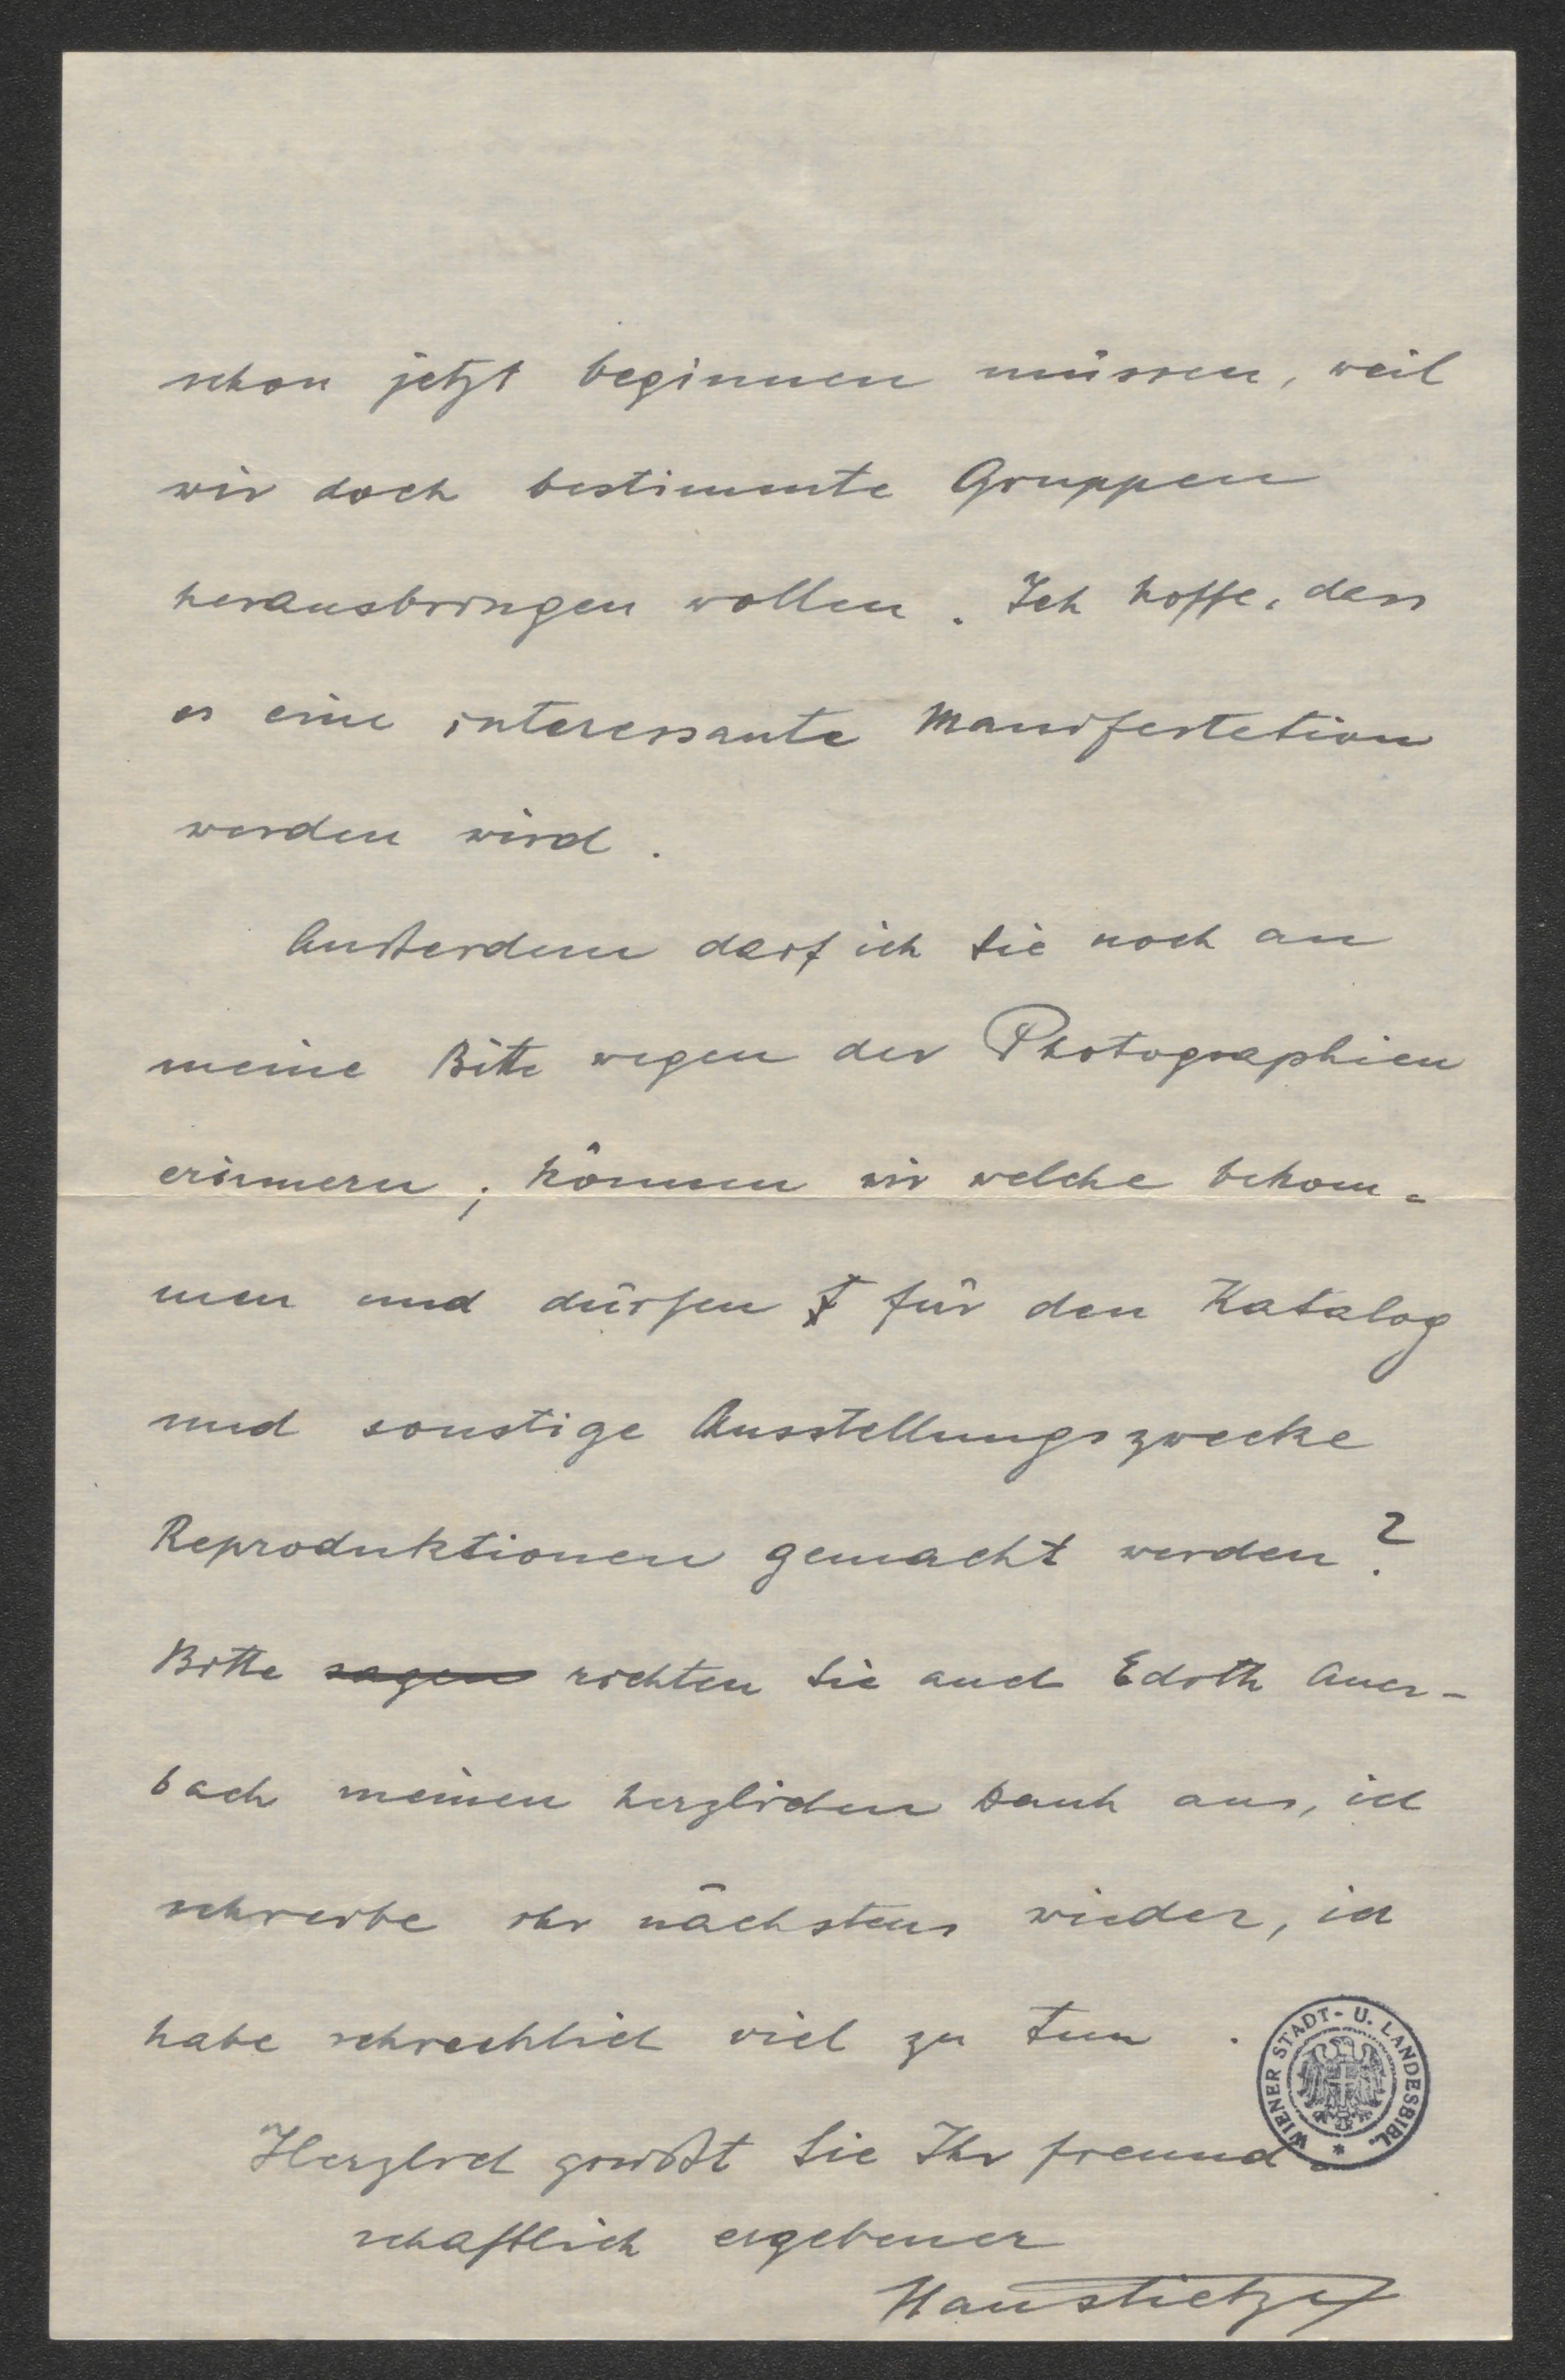 schon jetzt beginnen müssen, weil
wir doch bestimmte Gruppen
herausbringen wollen. Ich hoffe, dass
es eine interessante Manifestation
werden wird.
Außerdem darf ich Sie noch an
meine Bitte wegen der Photographien
erinnern; können wir welche bekom-
men und dürfen für den Katalog
und sonstige Ausstellungszwecke
Reproduktionen gemacht werden?
Bitte sagen richten Sie auch Edith Auer-
bach meinen herzlichen Dank aus, ich
schreibe ihr nächstens wieder, ich
habe schrecklich viel zu tun.
WIENER STADT- U. LANDESBIBL. *
Herzlich grüßt Sie Ihr freund-
schaftlich ergebener
Hans Tietze